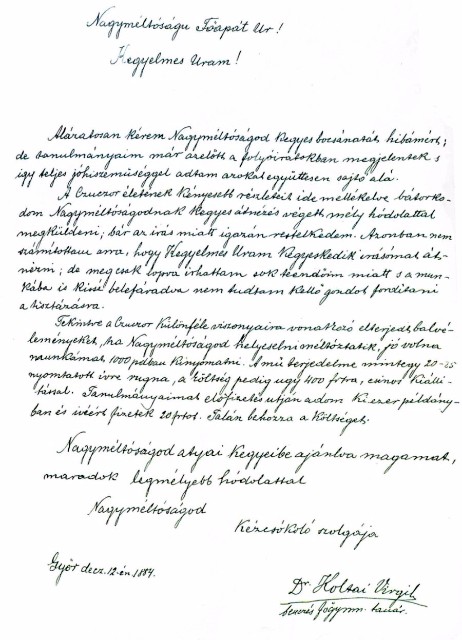 Nagyméltóságu Főapát Ur!
Kegyelmes Uram!
Alázatosan kérem Nagyméltóságod kegyes bocsánatát, hibámért;
de tanulmányaim már azelőtt a folyóiratokban megjelentek s
igy teljes jóhiszemiséggel adtam azokat együttesen sajtó alá.
A Czuczor életének kényesebb részleteit ide mellékelve bátorko-
dom Nagyméltóságodnak kegyes átnézés végett mély hódolattal
megküldeni; bár az irás miatt igazán restelkedem. Azonban nem
számitottam arra, hogy Kegyelmes Uram kegyeskedik irásomat át-
nézni; de meg csak lopva irhattam sok teendőim miatt s a mun-
kába is kissé belefáradva nem tudtam kellő gondot forditani
a tisztázásra.
Tekintve a Czuczor különféle viszonyaira vonatkozó elterjedt balvé-
leményeket, ha Nagyméltóságod helyeselni méltóztatik, jó volna
munkámat 1000 pdban kinyomatni. A mü terjedelme mintegy 20-25
nyomtatott ivre rugna, a költség pedig ugy 400 frtra, csinos kiálli-
tással. Tanulmányaimat előfizetés utján adom ki ezer példány-
ban és ivéért fizetek 20 frtos. Talán behozza a költséget.
Nagyméltóságod atyai kegyeibe ajánlva magamat,
maradok legmélyebb hódolattal
Nagyméltóságod
kézcsókoló szolgája
Győr decz. 12-én 1884.
Dr. Koltai Virgil
bencés főgymn. tanár.